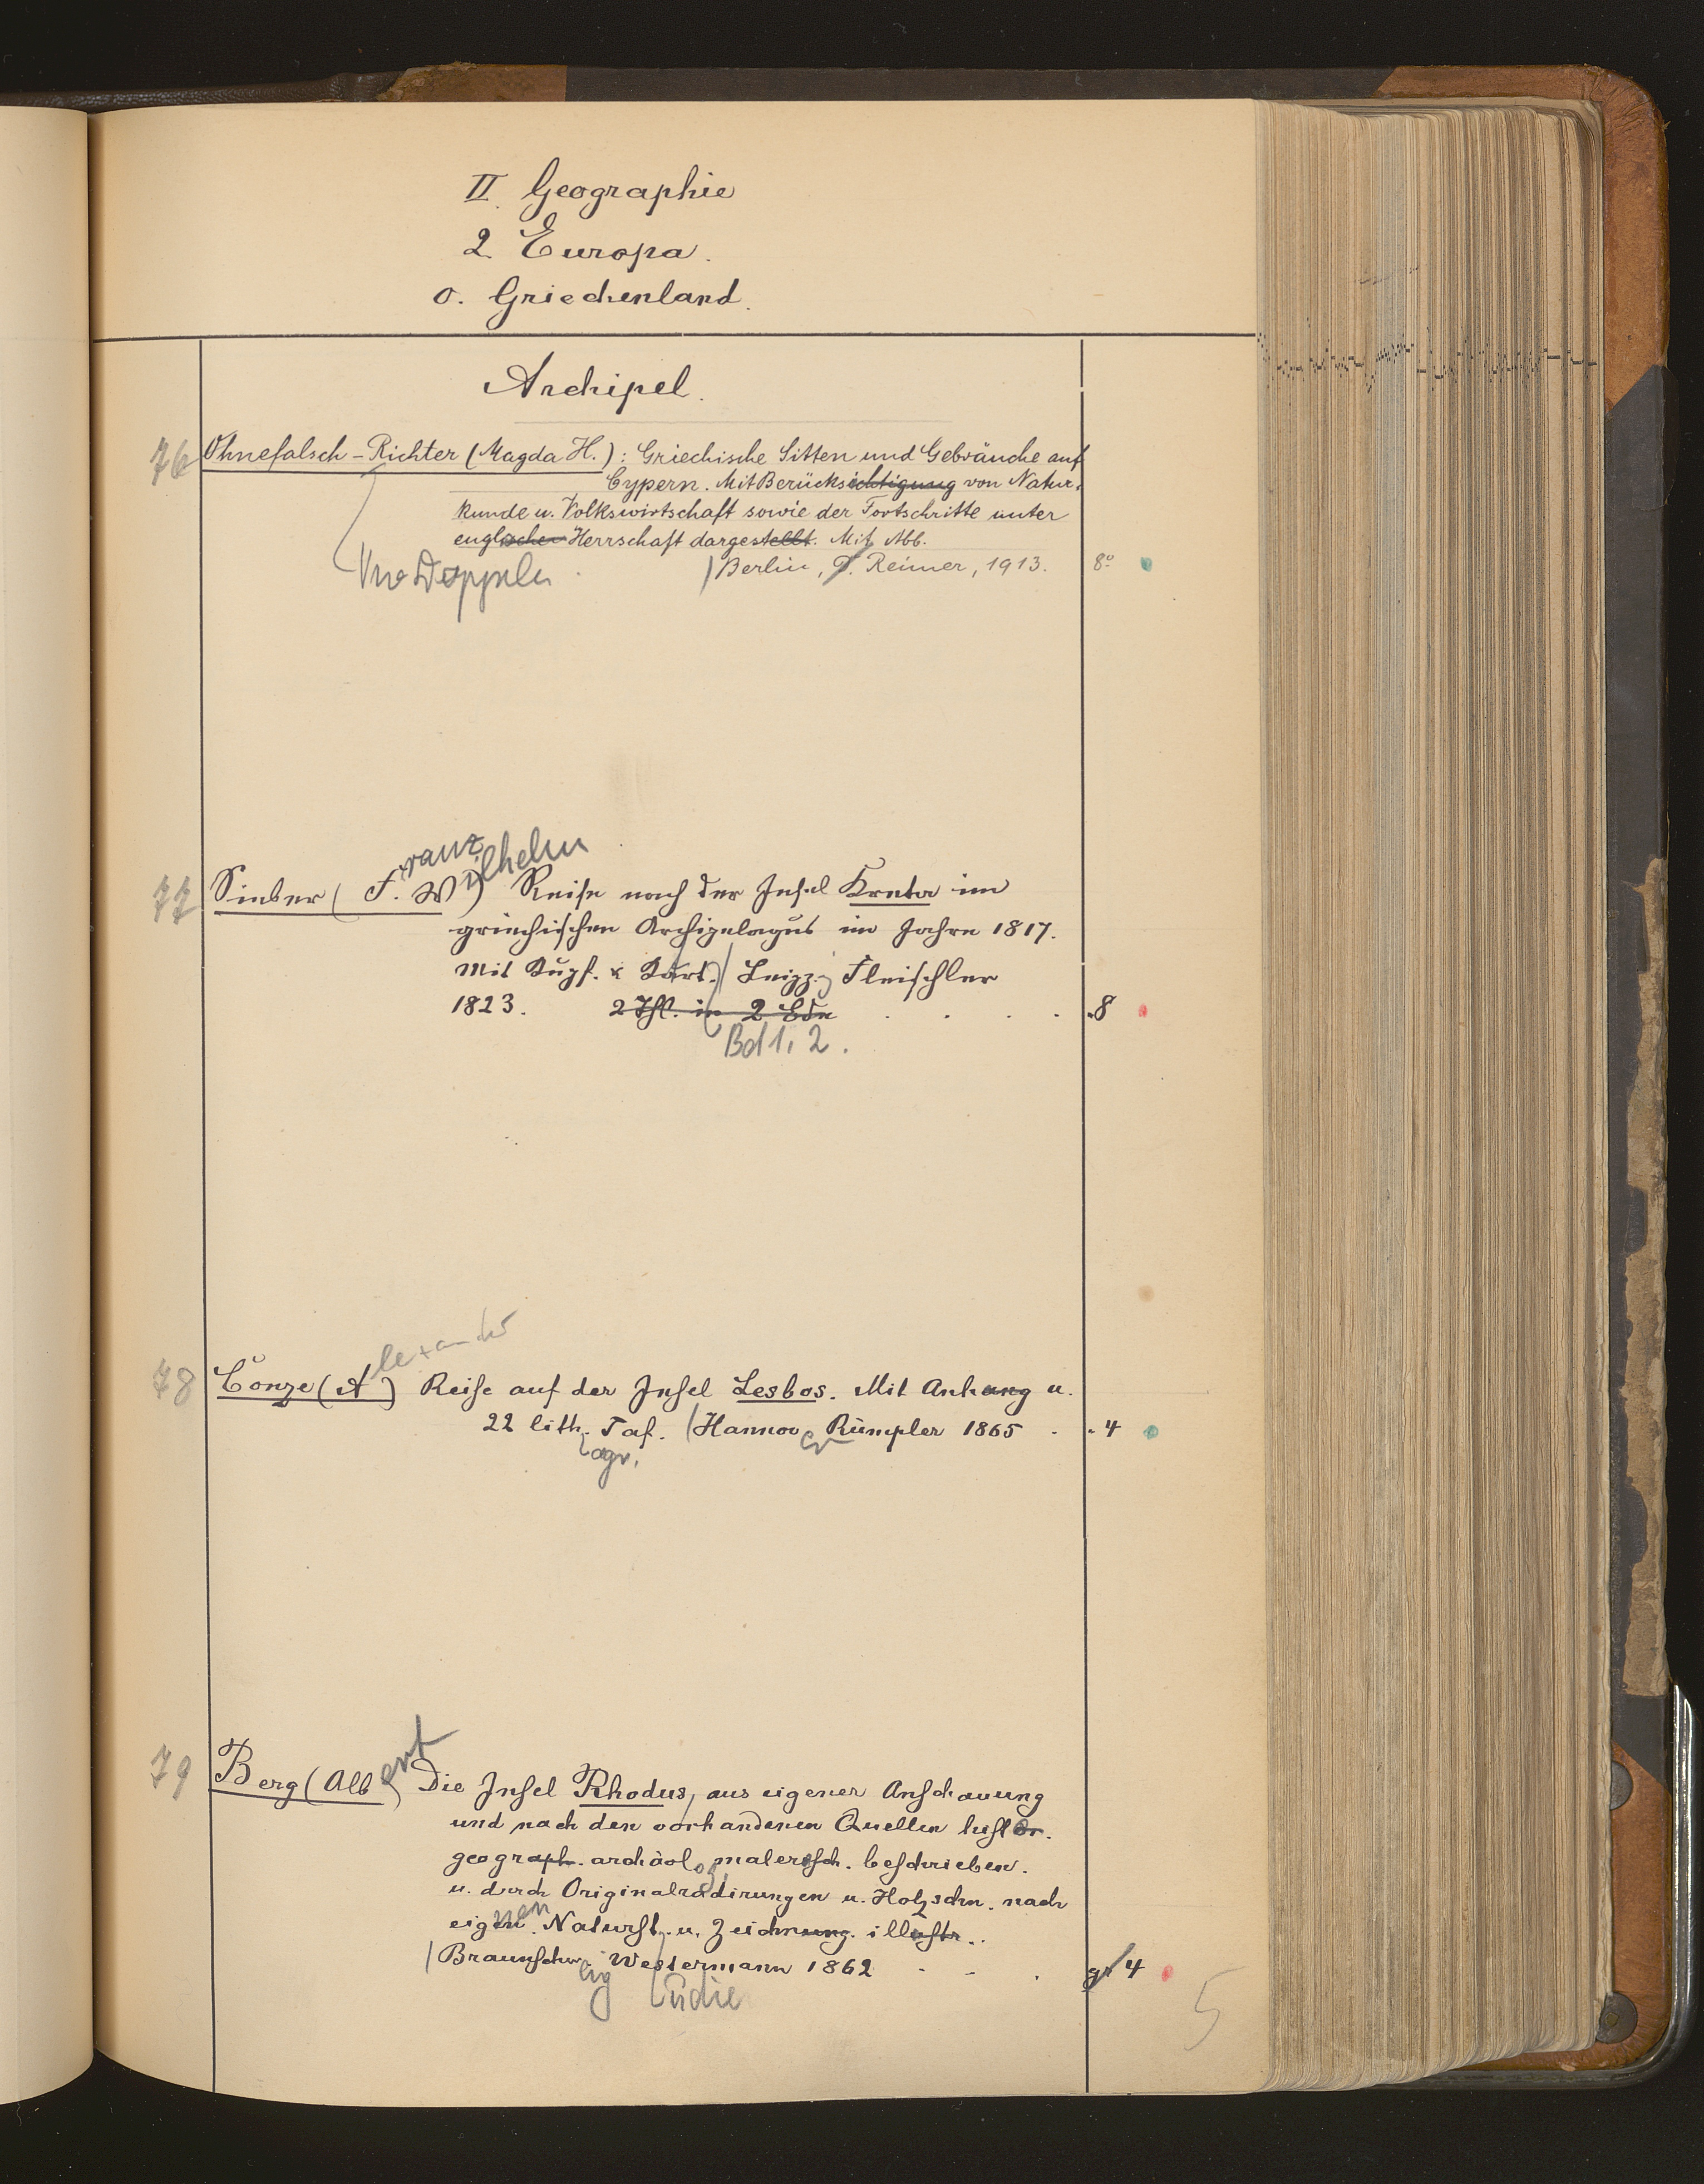 II. Geographie
2. Europa.
o. Griechenland.
Archipel.
76 Ohnefalsch-Richter (Magda H.): Griechische Sitten und Gebräuche auf
Cypern. Mit Berücksichtigung von Natur-
kunde u. Volkswirtschaft sowie der Fortschritte unter
englischer Herrschaft dargestellt. Mit Abb.
Berlin, D. Reimer, 1913. 8°
ranz ilhelm
77 Sieber (F. W) Reise nach der Insel Kreta im
griechischen Archipelagus im Jahre 1817.
Mit Kupf. & Kart. Leipz. Fleischler
1823. 2 Thl. in 2 Bdn . . . . .8
Bd 1, 2.
lexander
78 Conze (A) Reise auf der Insel Lesbos. Mit Anhang u.
22 lith. Taf. Hannov er Rümpler 1865 . . 4
ogr.
ert
79 Berg (Alb) Die Insel Rhodus, aus eigener Anschauung
und nach den vorhandenen Quellen histor.
geograph. archäol. og. malerisch. beschrieben.
u. durch Originalradirungen u. Holzschn. nach
eigen. nen Naturst. u. Zeichnung. illustr..
Braunschw. eig Westermann 1862 . . . gr 4
udie
5